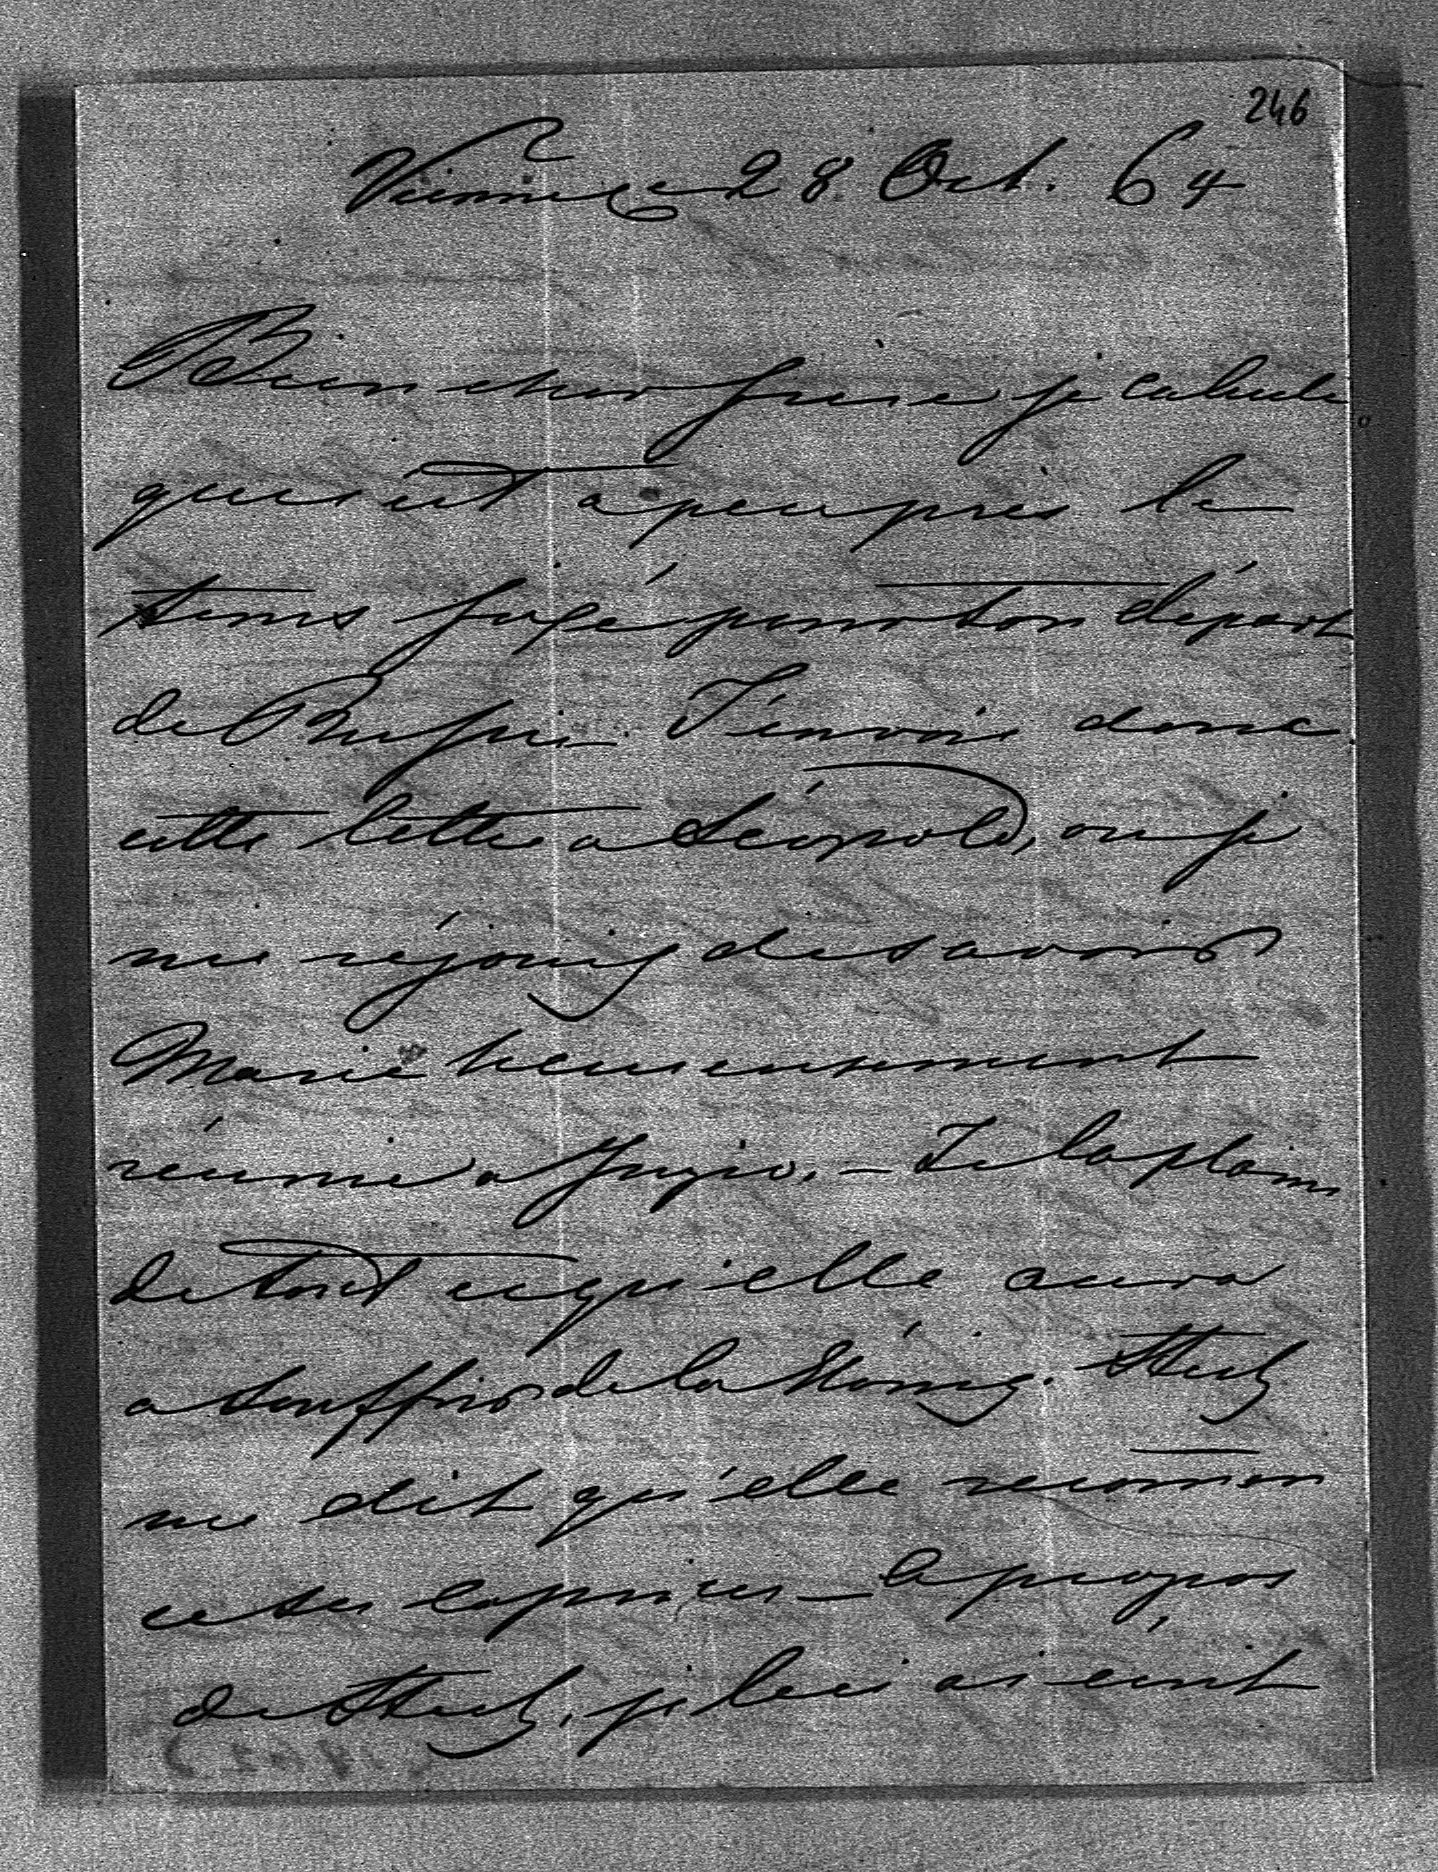 246
Vienne 28 Oct. 64
Bien cher frère je calcule
que c'est a peu près le
tems fixé pour ton départ
de Prusse. J'envoie donc
cette lettre a Léopold, ou je
me réjouis de savoir
Marie heureusement
réunie a Gugio. — Je la plains
de tout ce qu'elle aura
a souffrir de la König.
me dit qu'elle recommen
ce ses caprices — A propos
de je lui ai écrit